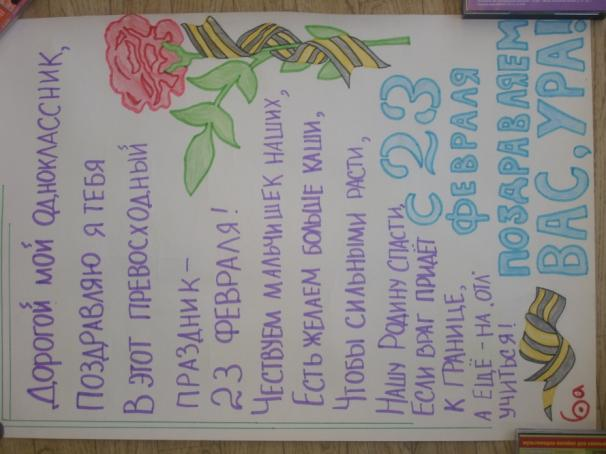 Дорогой мой одноклассник,
Поздравляю я тебя
В этот превосходный
праздник –
23 февраля!
Чествуем мальчишек наших,
Есть желаем больше каши,
Чтобы сильными расти,
Нашу Родину спасти,
Если враг придёт
к границе,
а ещё – на „отл"
учиться!
С 23
февраля
поздравляем
Вас, ура!
6а